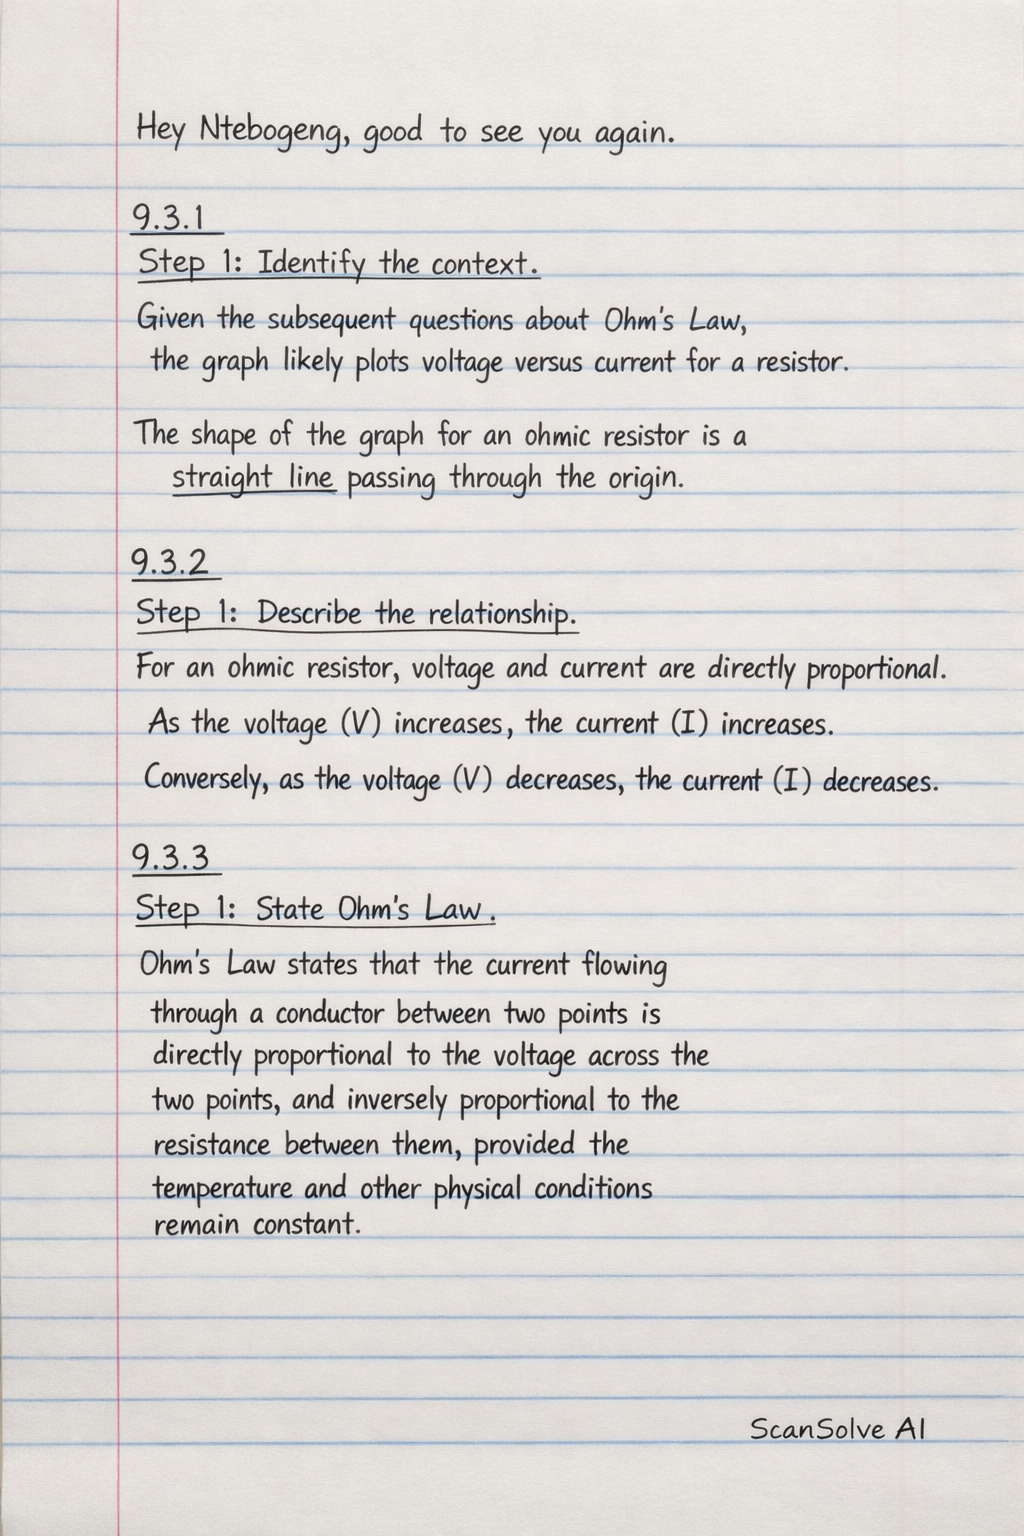 Hey Ntebogeng, good to see you again.
9.3.1
Step 1: Identify the context.
Given the subsequent questions about Ohm's Law,
the graph likely plots voltage versus current for a resistor.
The shape of the graph for an ohmic resistor is a
straight line passing through the origin.
9.3.2
Step 1: Describe the relationship.
For an ohmic resistor, voltage and current are directly proportional.
As the voltage (V) increases, the current (I) increases.
Conversely, as the voltage (V) decreases, the current (I) decreases.
9.3.3
Step 1: State Ohm's Law.
Ohm's Law states that the current flowing
through a conductor between two points is
directly proportional to the voltage across the
two points, and inversely proportional to the
resistance between them, provided the
temperature and other physical conditions
remain constant.
ScanSolve AI